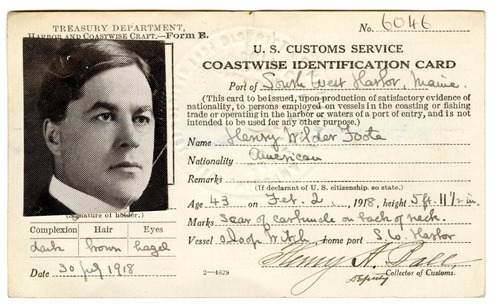 TREASURY DEPARTMENT,
HARBOR AND COASTWISE CRAFT.—FORM E.
No. 6046
U. S. CUSTOMS SERVICE
COASTWISE IDENTIFICATION CARD
Port of South West Harbor, Maine.
(This card to be issued, upon production of satisfactory evidence of
nationality, to persons employed on vessels in the coasting or fishing
trade or operating in the harbor or waters of a port of entry, and is not
intended to be used for any other purpose.)
Name Henry Wilder Foote
Nationality American
Remarks
(If declarant of U. S. citizenship, so state.)
Age 43 on Feb. 2, 1918, height 5 ft. 11½ in.
Marks Scar of carbuncle on back of neck.
Vessel Sloop Witch, home port S. W. Harbor
(Signature of holder.)
Complexion Hair Eyes
dark brown hazel
Date 30 July 1918
2—4629
Henry A. Dall
Deputy Collector of Customs.